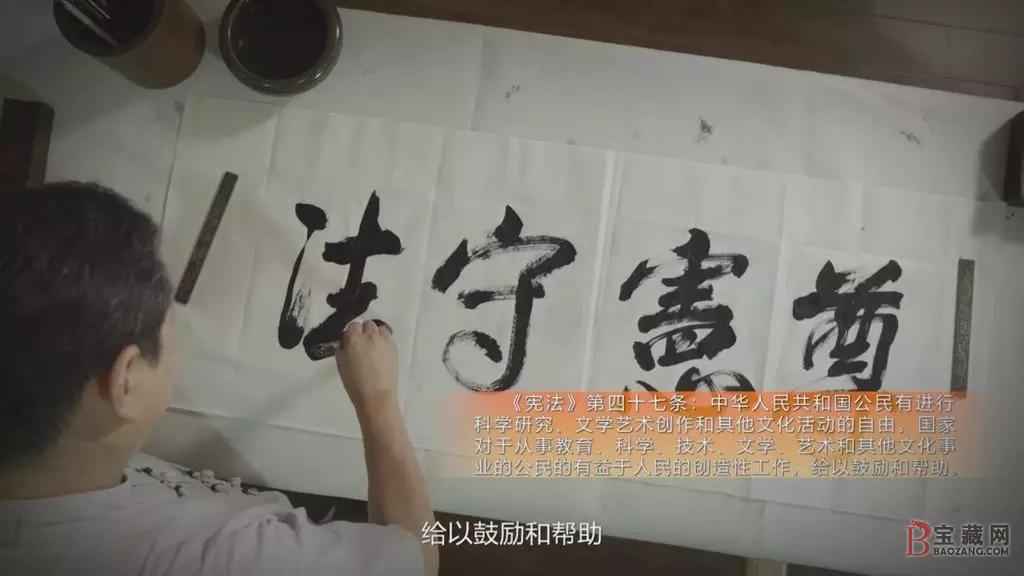 尊憲守法
《宪法》第四十七条：中华人民共和国公民有进行
科学研究、文学艺术创作和其他文化活动的自由。国家
对于从事教育、科学、技术、文学、艺术和其他文化事
业的公民的有益于人民的创造性工作，给以鼓励和帮助。
给以鼓励和帮助
宝藏网
BAOZANG.COM